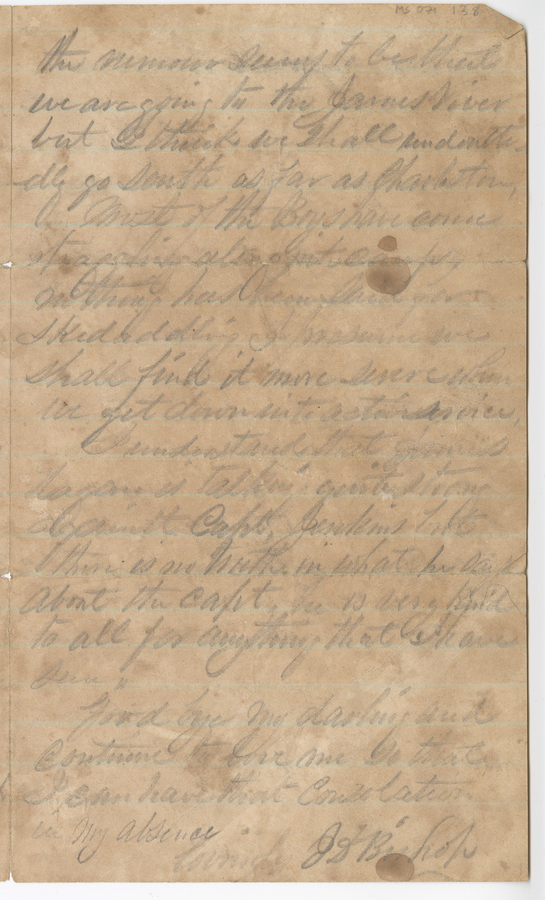 Ms 071 138
the rumour seems to be that
we are going to the James River
but I think we shall undoubte-
dly go South as far as Charleston,
Most of the Boys have come
straggling along into camp,
nothing has been said for
skedadling I presume we
shall find it more severe when
we get down into active service,
I understand that
is talking quite strong
against Capt, Jenkins but
there is no truth in what he said
about the Capt, he is very kind
to all for anything that I have
seen,
Good bye my darling and
continue to love me so that
I can have that Consolation
in my absence
J D Bishop